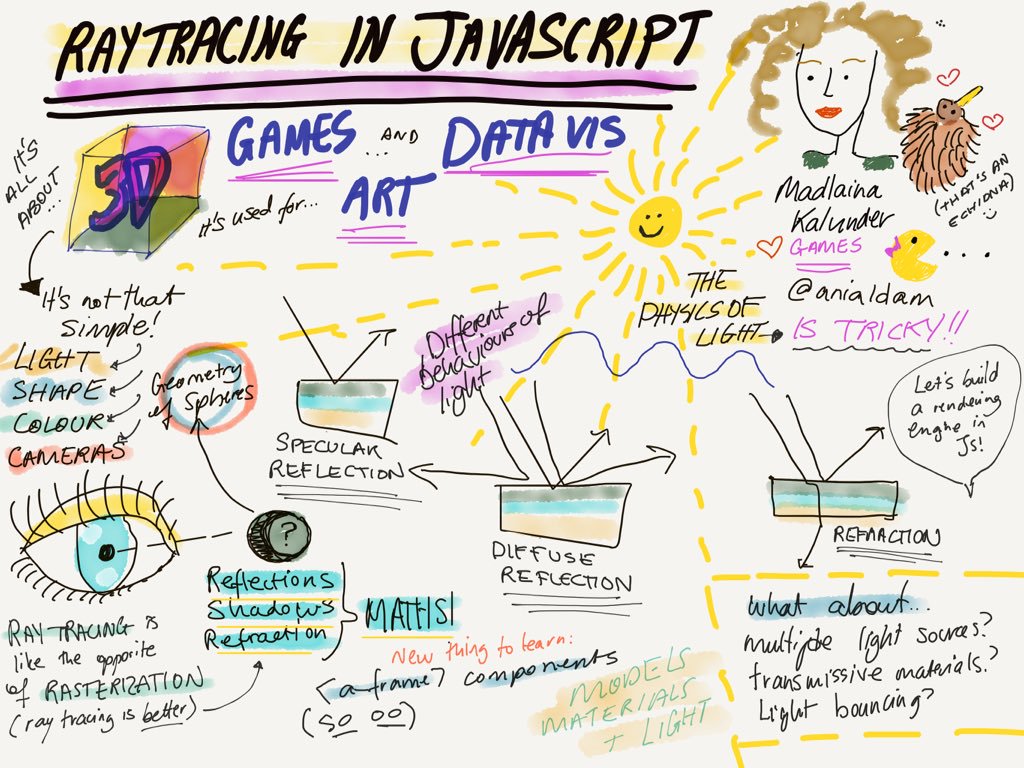 RAYTRACING IN JAVASCRIPT
IT'S
ALL
ABOUT...
3D
GAMES ... AND DATAVIS
It's used for... ART
Madlaina
Kalunder
GAMES
@anialdam
(THAT'S AN
ECHIDNA)
THE
PHYSICS OF
LIGHT
IS TRICKY!!
It's not that
simple!
LIGHT
SHAPE
COLOUR
CAMERAS
Geometry
of Spheres
SPECULAR
REFLECTION
Different
behaviours of
light
DIFFUSE
REFLECTION
REFRACTION
Let's build
a rendering
engine in
JS!
?
Reflections
Shadows
Refraction
MATHS!
RAY TRACING is
like the opposite
of RASTERIZATION
(ray tracing is better)
New thing to learn:
<a-frame> components
(SO OO)
MODELS
MATERIALS
+ LIGHT
what about...
multiple light sources?
transmissive materials?
Light bouncing?